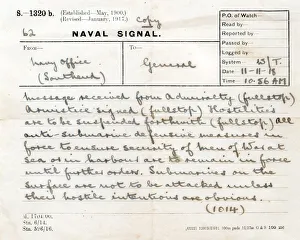 S.—1320 b. (Established—May, 1900.)
(Revised—January, 1917.)
Copy
P.O. of Watch—
Read by—
Reported by—
Passed by—
Logged by—
System— W/T.
Date 11-11-18
Time 10.56 AM
62 NAVAL SIGNAL.
From— To—
Navy Office General
(Southend)
Message received from Admiralty (fullstop)
Armistice signed (fullstop) Hostilities
are to be suspended forthwith (fullstop) all
anti-submarine defensive measures in
force to ensure security of Men of War at
Sea or in harbour are to remain in force
until further orders. Submarines on the
surface are not to be attacked unless
their hostile intentions are obvious.
(1014)
Sta. 6/14.
Sta. 3/6/16.